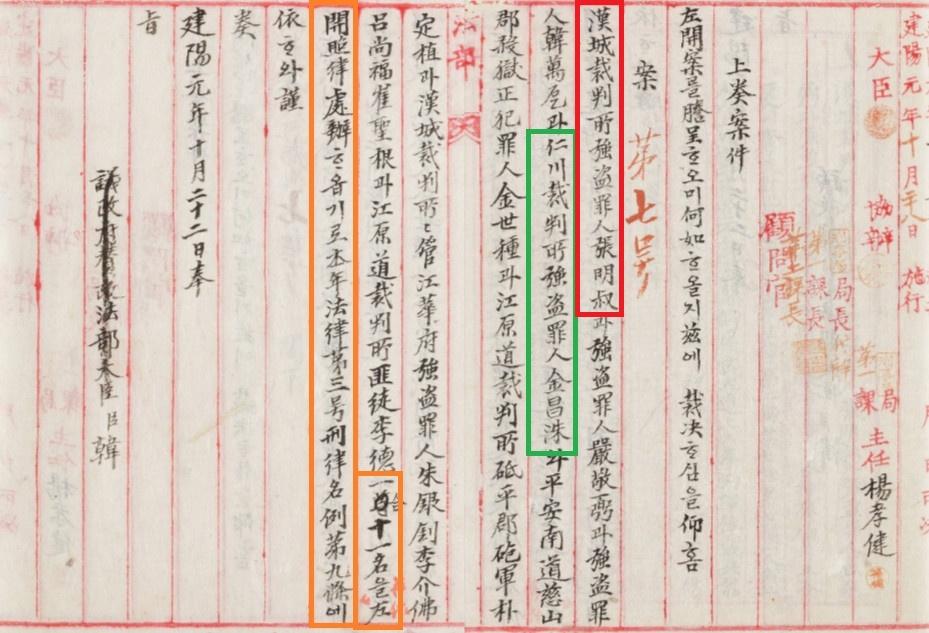 建陽元年十月二十八日 施行
大臣 協辦 第一 局 課 主任 楊孝健
局長 課長
顧問官
上奏案件
左開案을謄呈ᄒᆞ오미何如ᄒᆞ올지玆에 裁決ᄒᆞ심을仰홈
案 第七号
漢城裁判所強盜罪人張明叔과強盜罪人嚴敬弼과強盜罪
人韓萬石과仁川裁判所強盜罪人金昌洙와平安南道慈山
郡殺獄正犯罪人金世種과江原道裁判所砥平郡砲軍朴
法部
定植과漢城裁判所〻管江華府強盜罪人朱銀釗李介佛
呂尚福崔聖根과江原道裁判所匪徒李德一合十一名을左
開照律處辦ᄒᆞ옵기로本年法律第三号刑律名例第九條에
依ᄒᆞ와謹
奏
建陽元年十月二十二日奉
旨
議政府贊政法部大臣臣韓